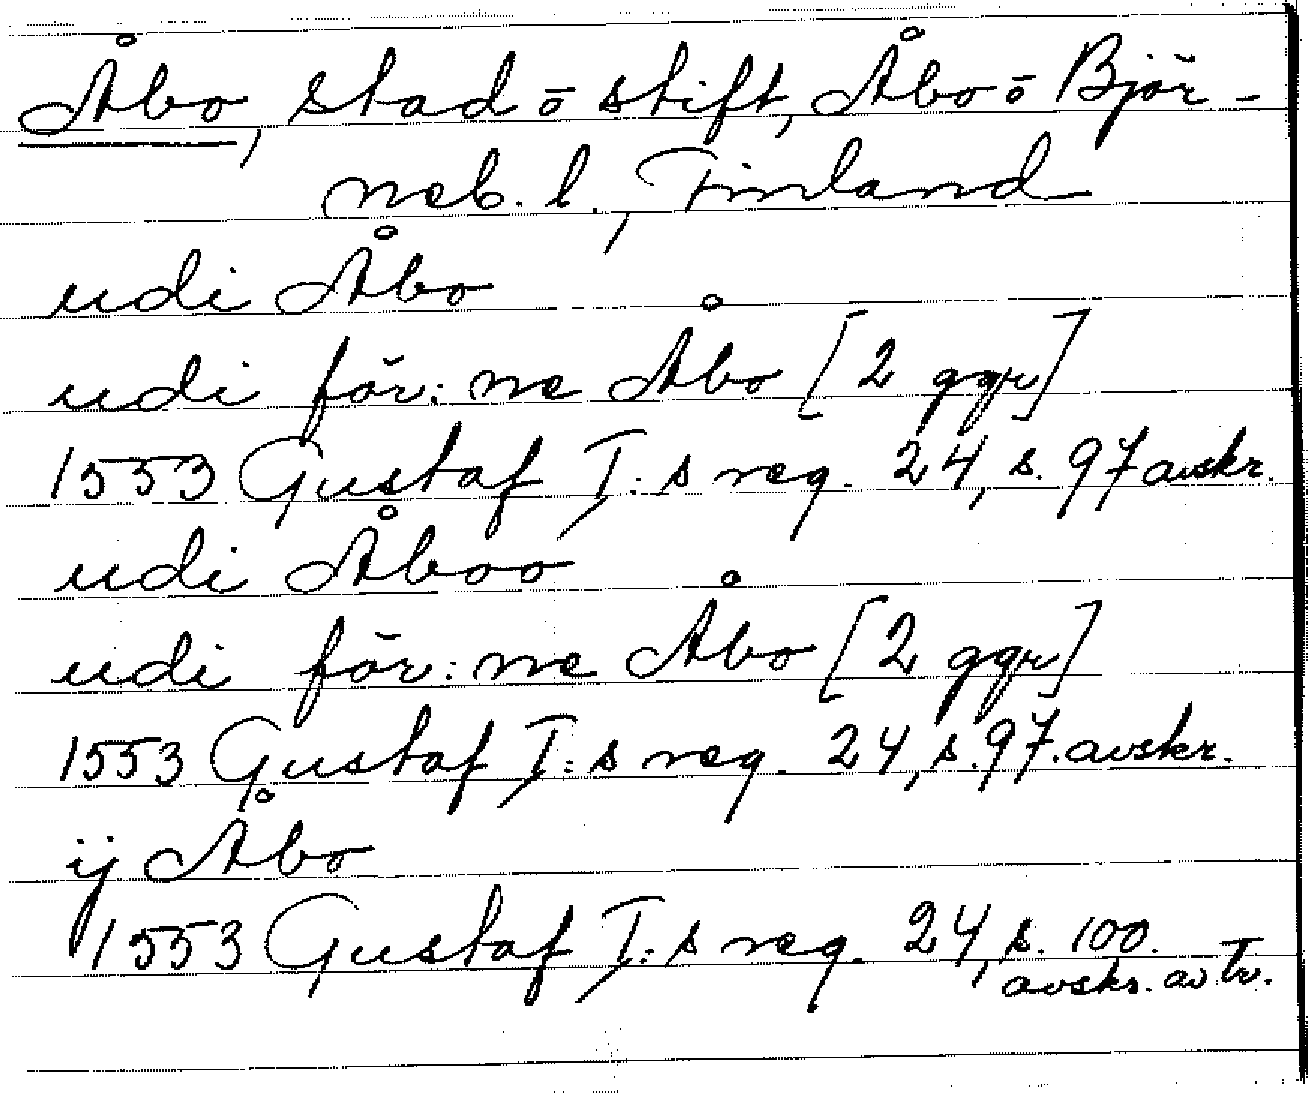 Åbo, stad ō stift, Åbo ō Björ-
neb. l., Finland
udi Åbo
udi för:ne Åbo [2 ggr]
1553 Gustaf I:s reg. 24, s. 97 avskr.
udi Åboo
udi för:ne Åbo [2 ggr]
1553 Gustaf I:s reg. 24, s. 97. avskr.
ij Åbo
1553 Gustaf I:s reg. 24, s. 100.
avskr. av Tv.